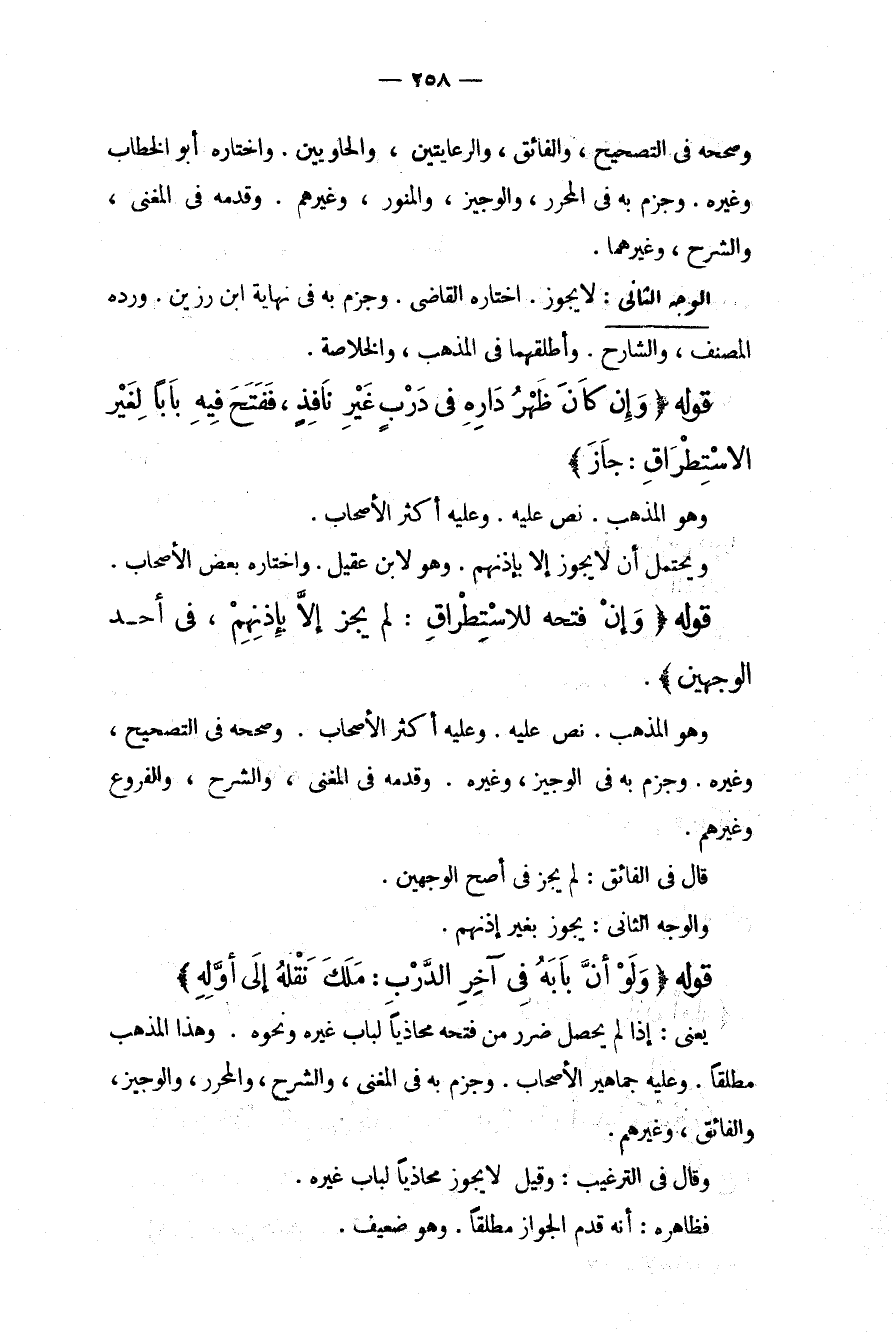 — ٢٥٨ —
وصححه فى التصحيح ، والفائق ، والرعايتين ، والحاويين . واختاره أبو الخطاب
وغيره . وجزم به فى المحرر ، والوجيز ، والمنور ، وغيرهم . وقدمه فى المغنى ،
والشرح ، وغيرهما .
الوجه الثانى : لايجوز . اختاره القاضى . وجزم به فى نهاية ابن رزين . ورده
المصنف ، والشارح . وأطلقهما فى المذهب ، والخلاصة .
قوله ﴿ وَإِن كاَنَ ظَهْرُ دَارِهِ فى دَرْبٍ غَيْرِ نَافِذٍ ، فَفَتَحَ فِيهِ بَاباً لِغَيْرِ
الاسْتِطْرَاقِ : جاَزَ ﴾
وهو المذهب . نص عليه . وعليه أكثر الأصحاب .
ويحتمل أن لايجوز إلا بإذنهم . وهو لابن عقيل . واختاره بعض الأصحاب .
قوله ﴿ وَإِنْ فتحه للاسْتِطْراقِ : لم يجز إلاَّ بِإِذنِهِمْ ، فى أحـد
الوجهين ﴾ .
وهو المذهب . نص عليه . وعليه أكثر الأصحاب . وصححه فى التصحيح ،
وغيره . وجزم به فى الوجيز ، وغيره . وقدمه فى المغنى ، والشرح ، والفروع
وغيرهم .
قال فى الفائق : لم يجز فى أصح الوجهين .
والوجه الثانى : يجوز بغير إذنهم .
قوله ﴿ وَلَوْ أنَّ بَابَهُ فِى آخِرِ الدَّرْبِ : مَلَكَ نَقْلهُ إلَى أوَّلِهِ ﴾
يعنى : إذا لم يحصل ضرر من فتحه محاذياً لباب غيره ونحوه . وهذا المذهب
مطلقاً . وعليه جماهير الأصحاب . وجزم به فى المغنى ، والشرح ، والمحرر ، والوجيز ،
والفائق ، وغيرهم .
وقال فى الترغيب : وقيل لايجوز محاذياً لباب غيره .
فظاهره : أنه قدم الجواز مطلقاً . وهو ضعيف .